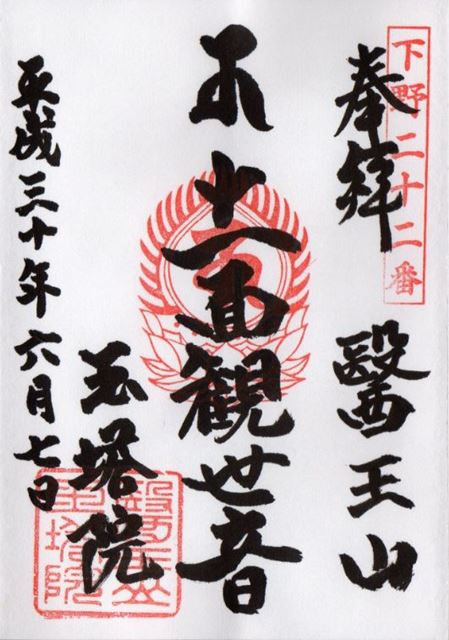 下野二十二番
奉拝
醫王山
十一面観世音
玉塔院
平成三十年六月七日
醫王山
玉塔院